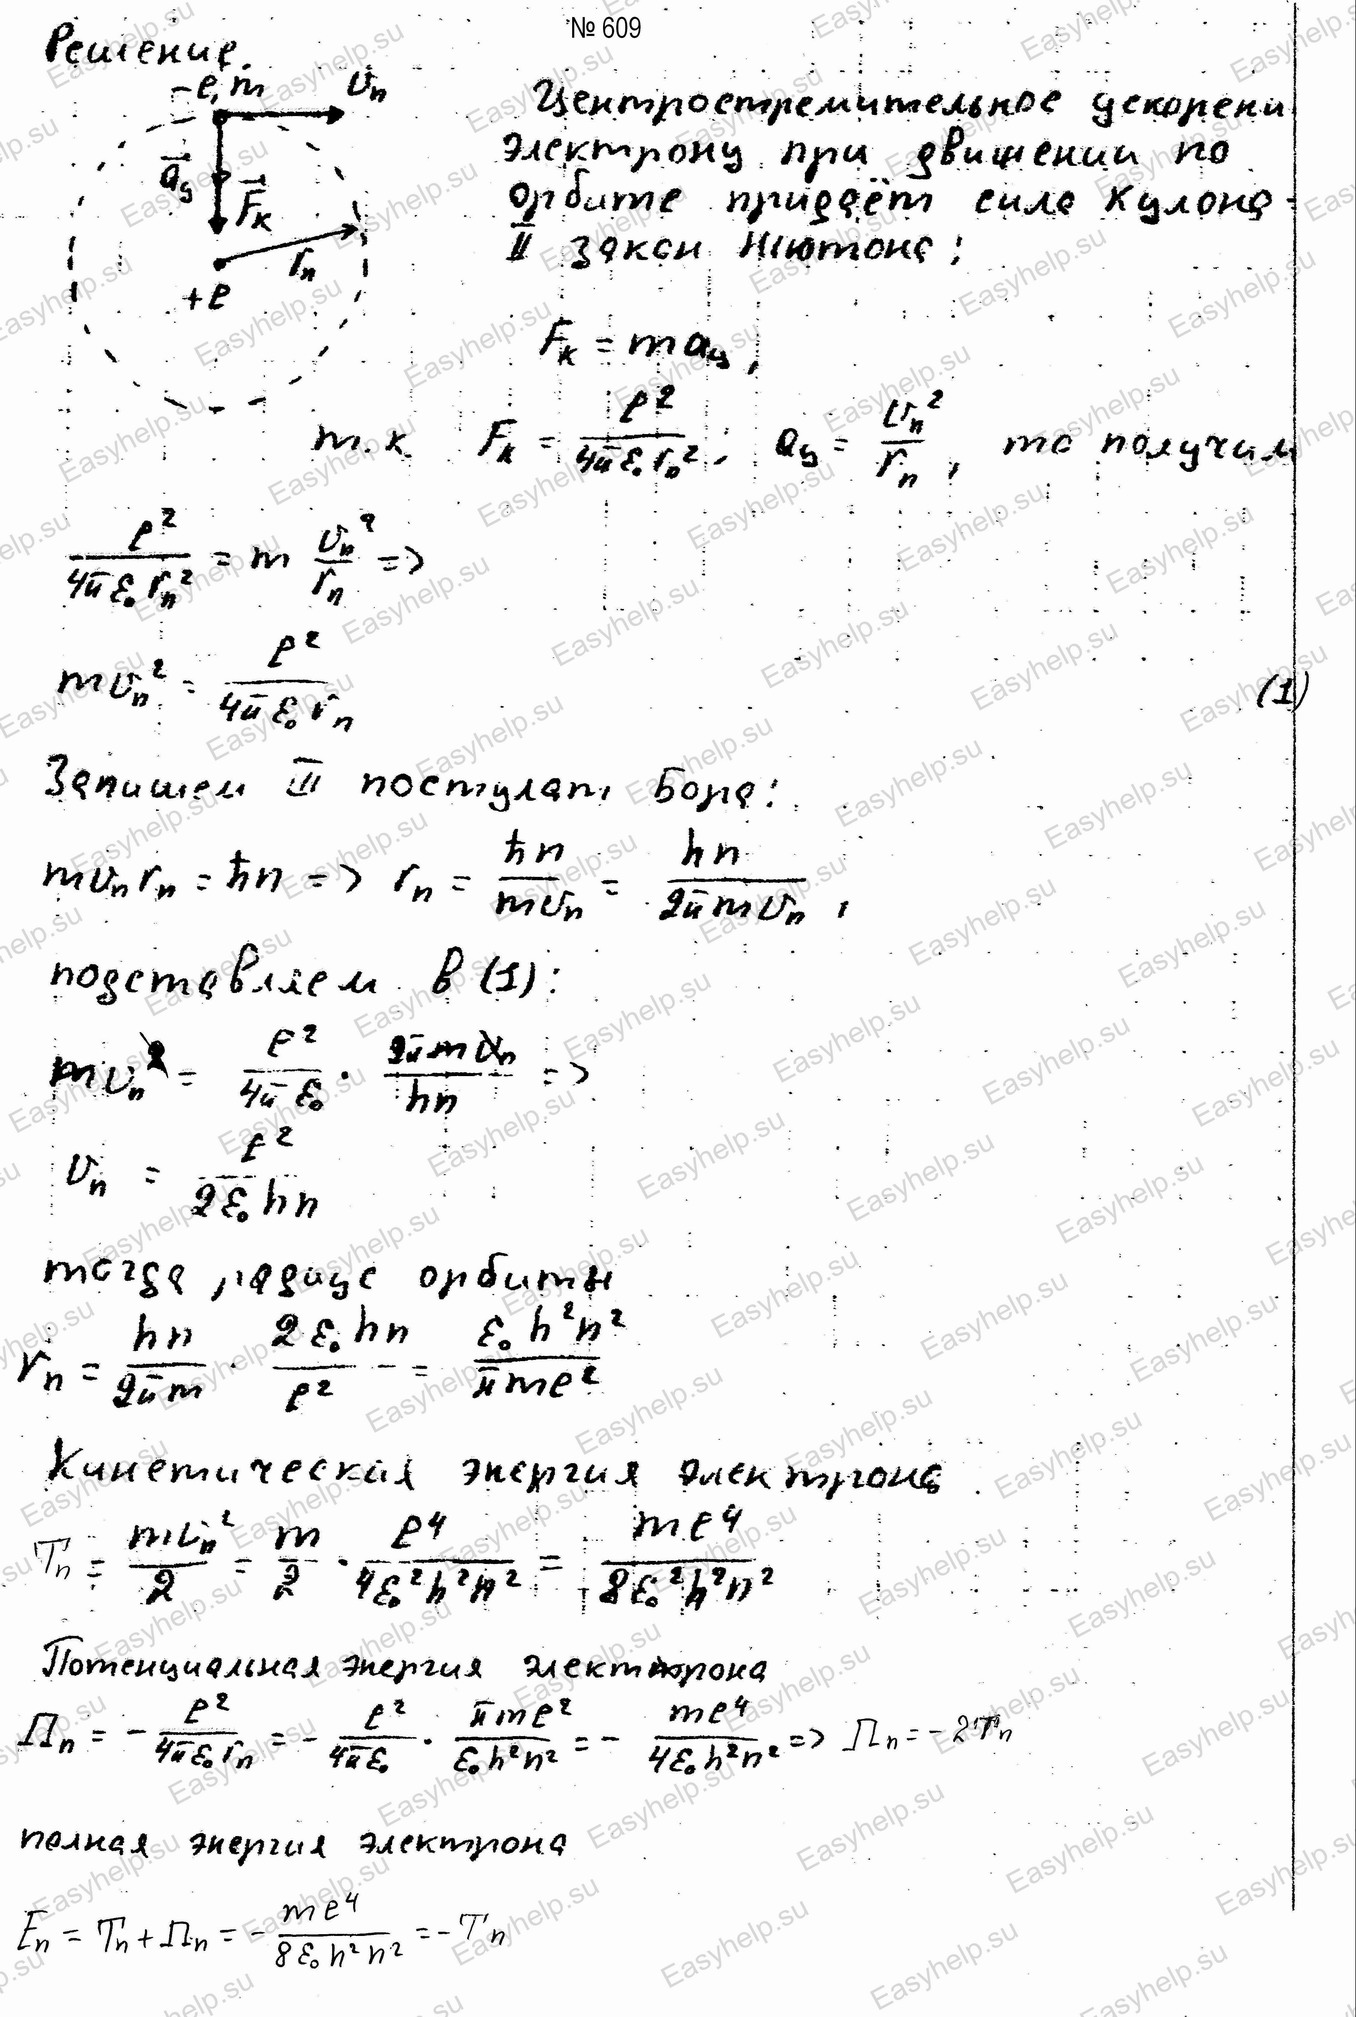 № 609
Решение.
-e, m vₙ
Центростремительное ускорени
электрону при движении по
орбите придаёт сила Кулона -
II закон Ньютона:
a⃗ц
F⃗к
rₙ
+e
Fк = maц,
т.к. Fк = e²/(4πε₀rₙ²), aц = vₙ²/rₙ, то получим
e²/(4πε₀rₙ²) = m vₙ²/rₙ =>
mvₙ² = e²/(4πε₀rₙ) (1)
Запишем III постулат Бора:
mvₙrₙ = ħn => rₙ = ħn/(mvₙ) = hn/(2πmvₙ),
подставляем в (1):
mvₙ² = e²/(4πε₀) · 2πmvₙ/(hn) =>
vₙ = e²/(2ε₀hn)
тогда радиус орбиты
rₙ = hn/(2πm) · 2ε₀hn/e² = ε₀h²n²/(πme²)
Кинетическая энергия электрона
Tₙ = mvₙ²/2 = m/2 · e⁴/(4ε₀²h²n²) = me⁴/(8ε₀²h²n²)
Потенциальная энергия электрона
Пₙ = - e²/(4πε₀rₙ) = - e²/(4πε₀) · πme²/(ε₀h²n²) = - me⁴/(4ε₀h²n²) => Пₙ = -2Tₙ
полная энергия электрона
Eₙ = Tₙ + Пₙ = - me⁴/(8ε₀h²n²) = -Tₙ
Easyhelp.su